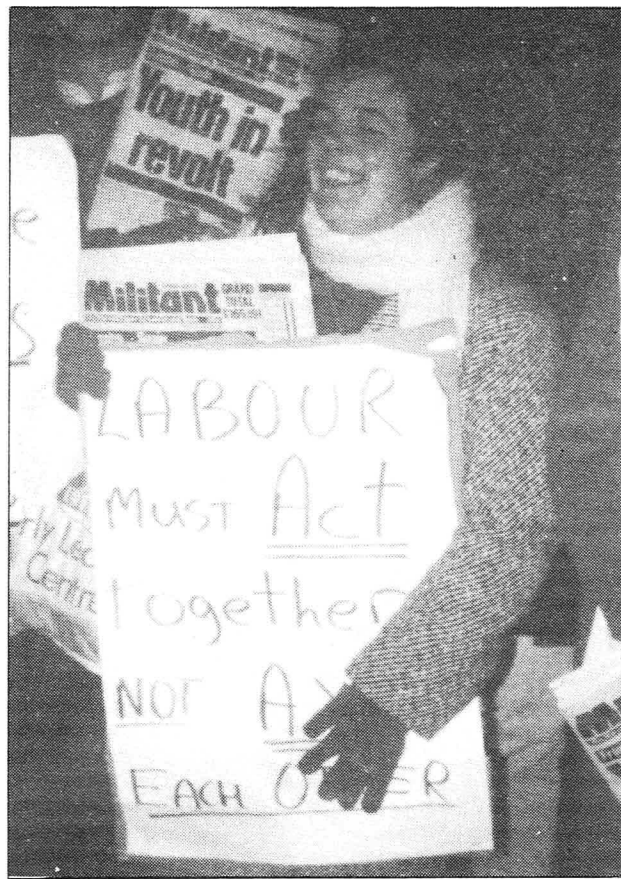 Militant
Youth in
revolt
Militant GRAND
TOTAL
LABOUR
MUST Act
Together
NOT
EACH
e
S
Centr